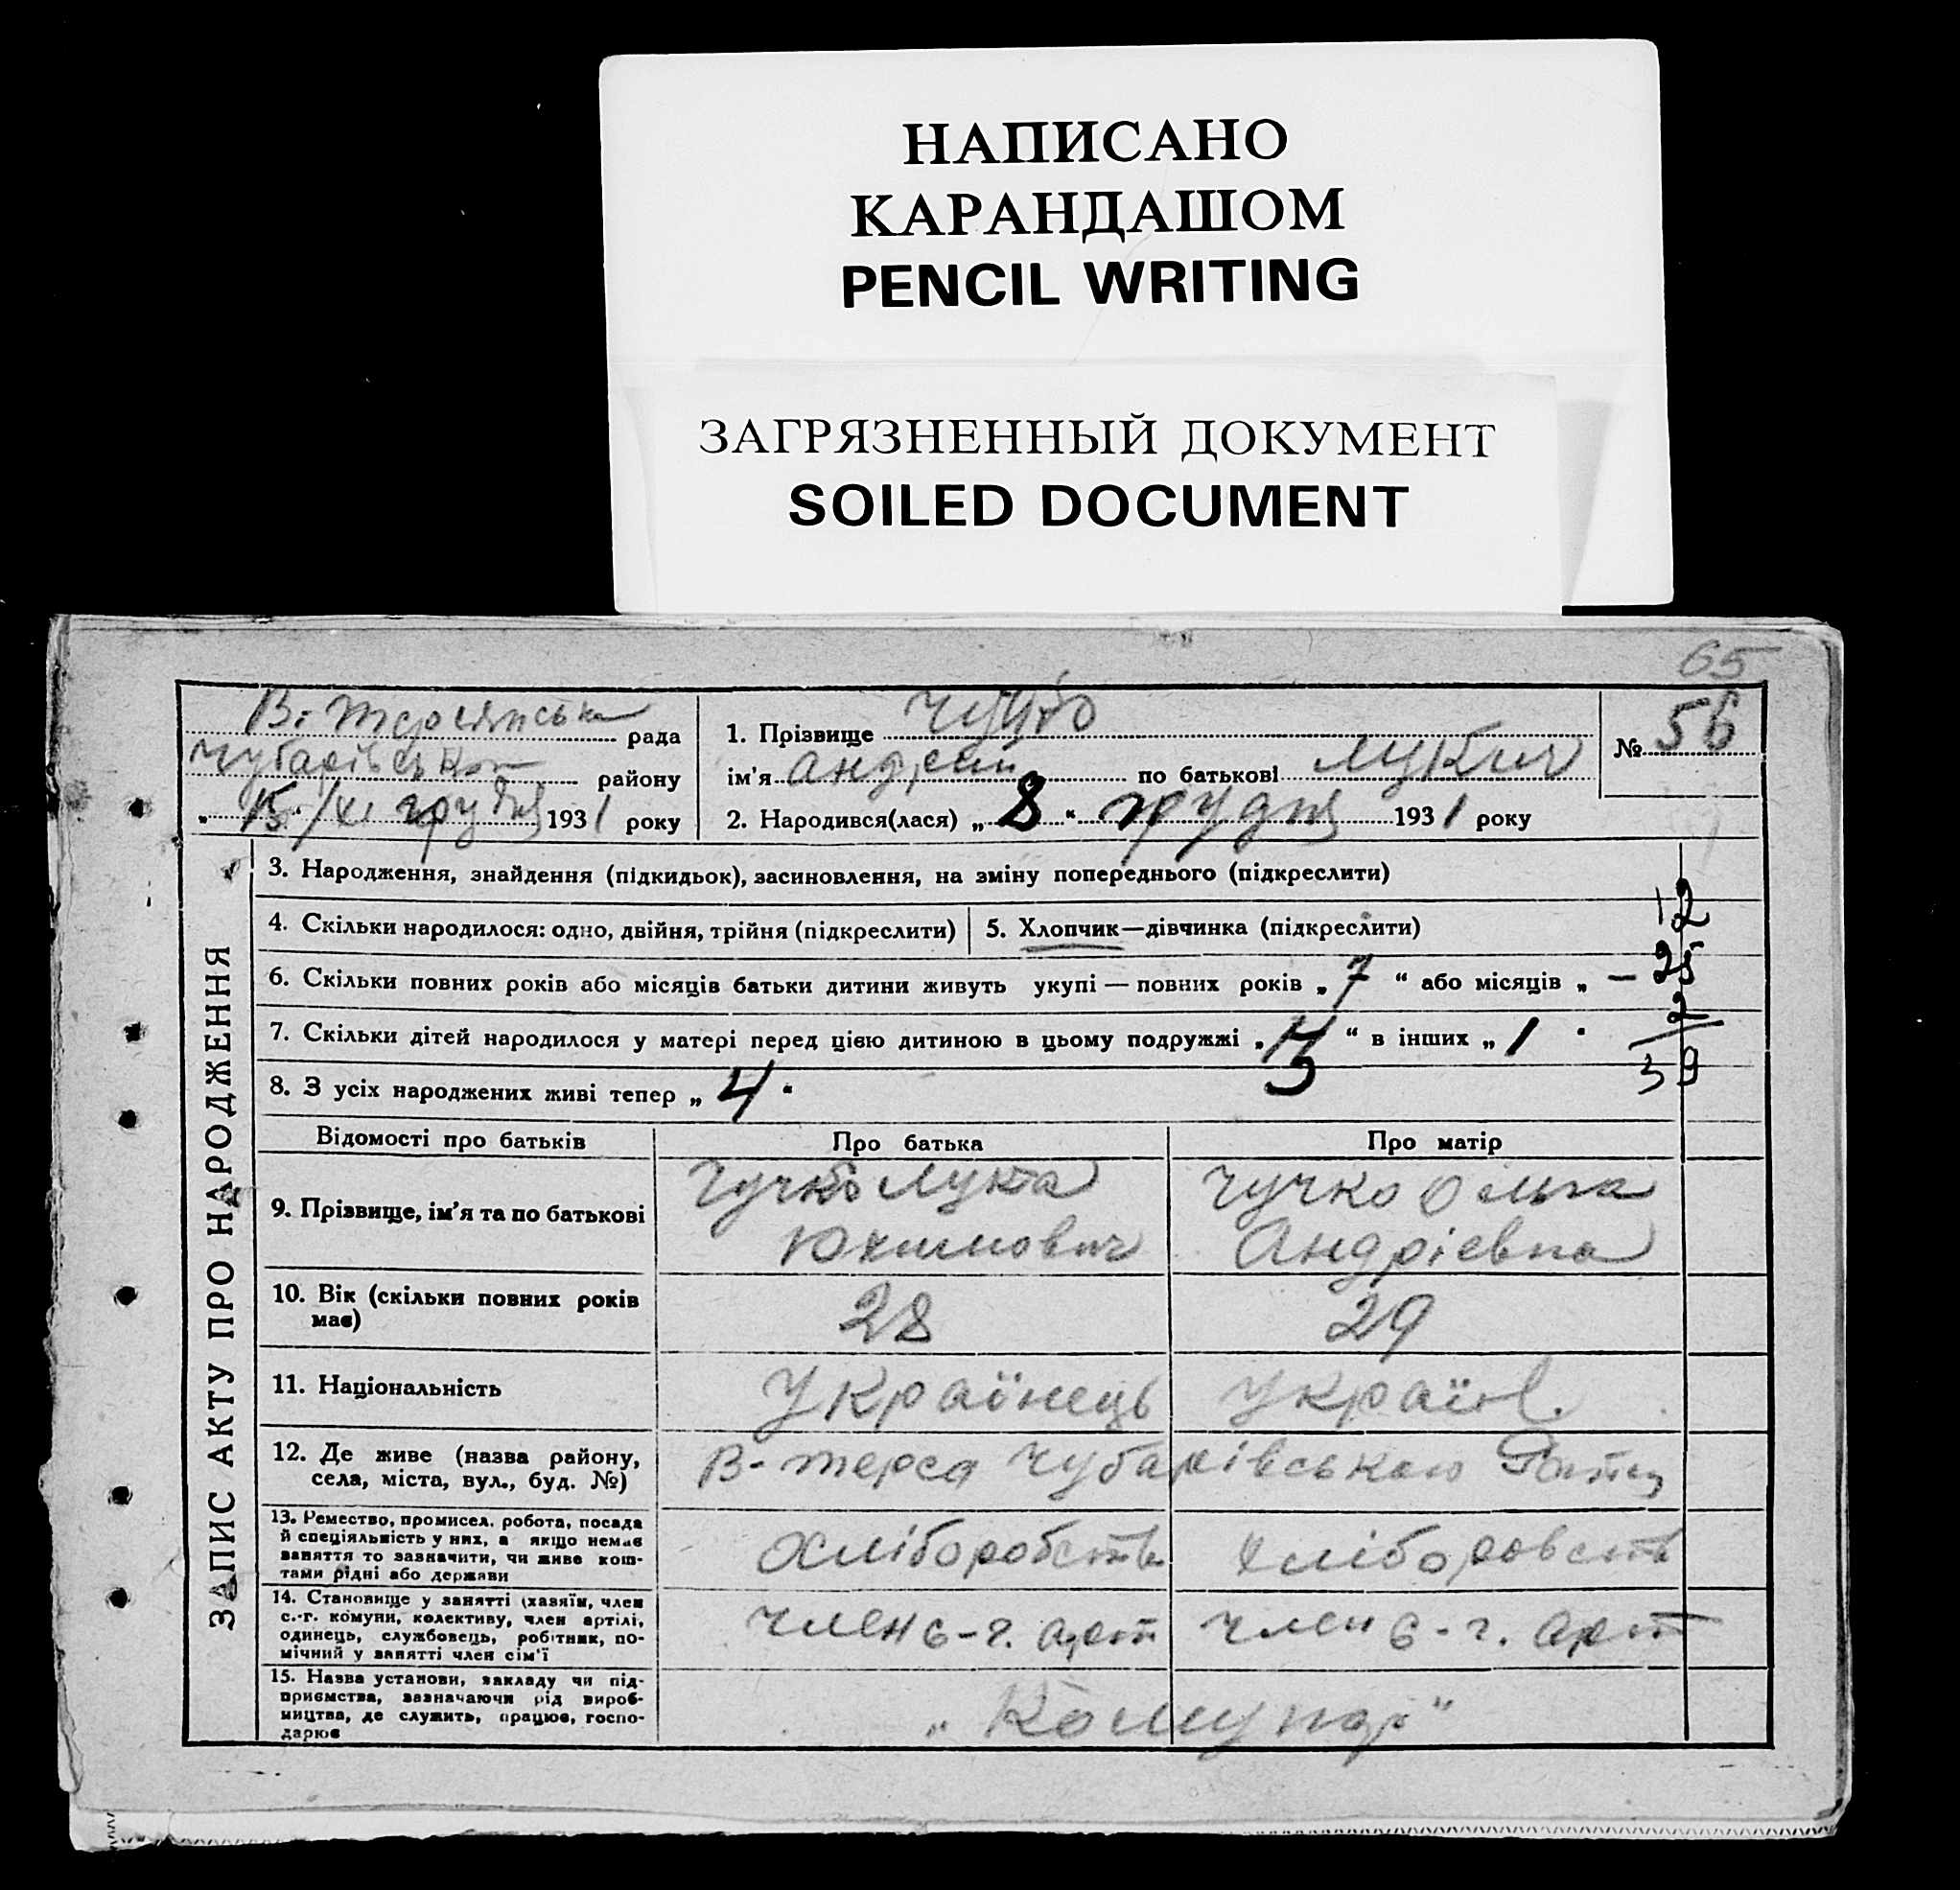 НАПИСАНО
КАРАНДАШОМ
PENCIL WRITING
ЗАГРЯЗНЕННЫЙ ДОКУМЕНТ
SOILED DOCUMENT
65
рада
району
" 15 " /XII грудня 1931 року
1. Прізвище
ім'я Андрей по батькові Лукич
№ 56
2. Народився(лася) „ 8 “ грудня 1931 року
ЗАПИС АКТУ ПРО НАРОДЖЕННЯ
3. Народження, знайдення (підкидьок), засиновлення, на зміну попереднього (підкреслити)
4. Скільки народилося: одно, двійня, трійня (підкреслити)
5. Хлопчик—дівчинка (підкреслити)
12
6. Скільки повних років або місяців батьки дитини живуть укупі — повних років „ 7 “ або місяців „ —
25
2
7. Скільки дітей народилося у матері перед цією дитиною в цьому подружжі „ 3 “ в інших „ 1
39
8. З усіх народжених живі тепер „ 4 “
Відомості про батьків
Про батька
Про матір
9. Прізвище, ім'я та по батькові
Чучко Лука
Юхимович
Чучко Ольга
Андріевна
10. Вік (скільки повних років
має)
28
29
11. Національність
Українець
Україн.
12. Де живе (назва району,
села, міста, вул., буд. №)
В-Терса Чубарівського
13. Ремество, промисел, робота, посада
й спеціяльність у них, а якщо немає
заняття то зазначити, чи живе кош-
тами рідні або держави
Хліборобств
Хліборобств
14. Становище у занятті (хазяїн, член
с.-г. комуни, колективу, член артілі,
одинець, службовець, робітник, по-
мічний у занятті член сім'ї
член с-г. арт
член с-г. арт
15. Назва установи, закладу чи під-
приємства, зазначаючи рід вироб-
ництва, де служить, працює, госпо-
дарює